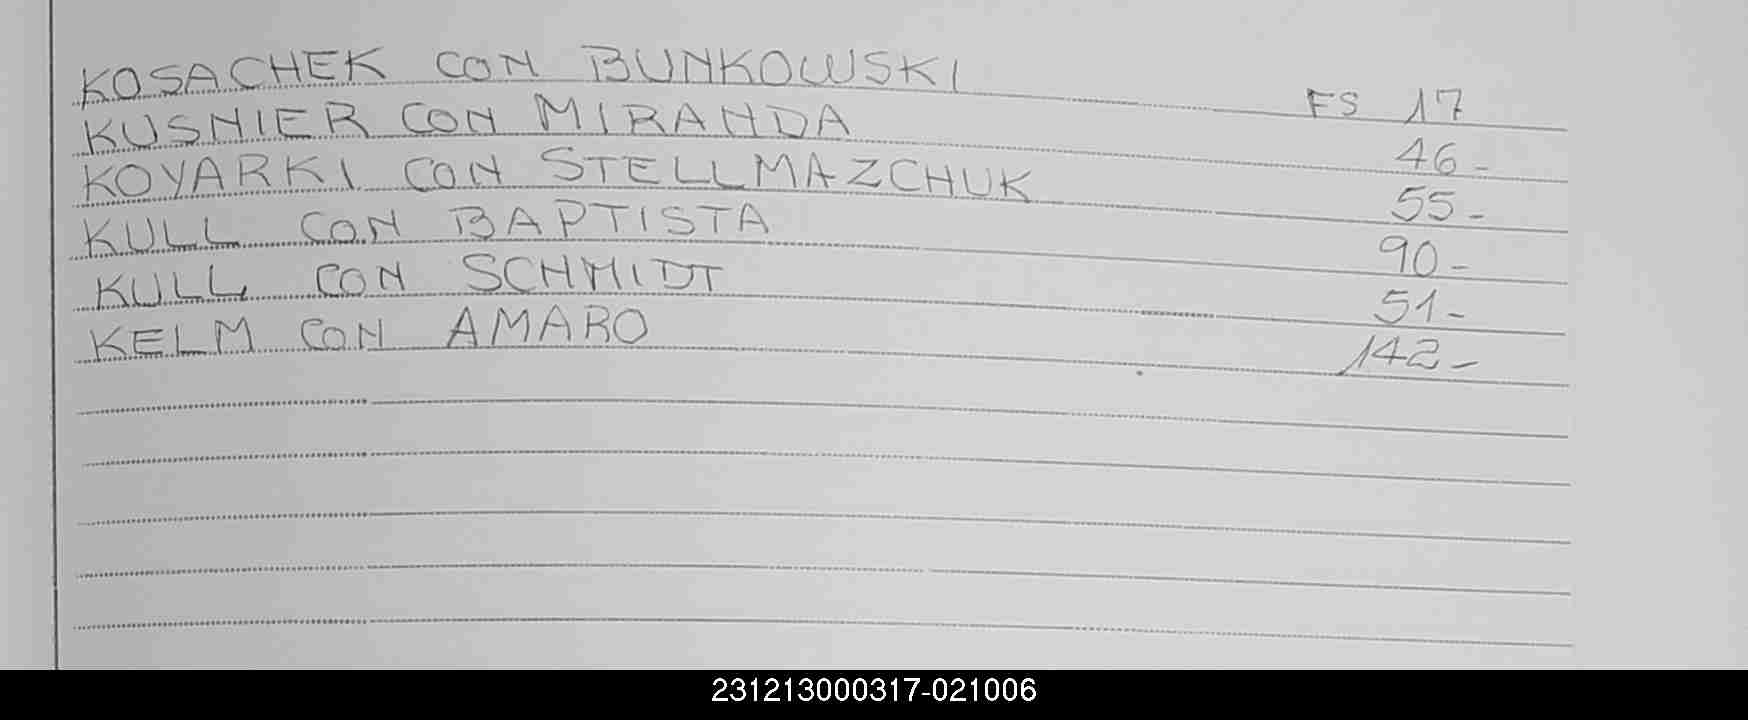 KOSACHEK CON BUNKOWSKI FS 17
KUSNIER CON MIRANDA 46-
KOYARKI CON STELLMAZCHUK 55-
KULL CON BAPTISTA 90-
KULL CON SCHMIDT 51-
KELM CON AMARO 142-
231213000317-021006